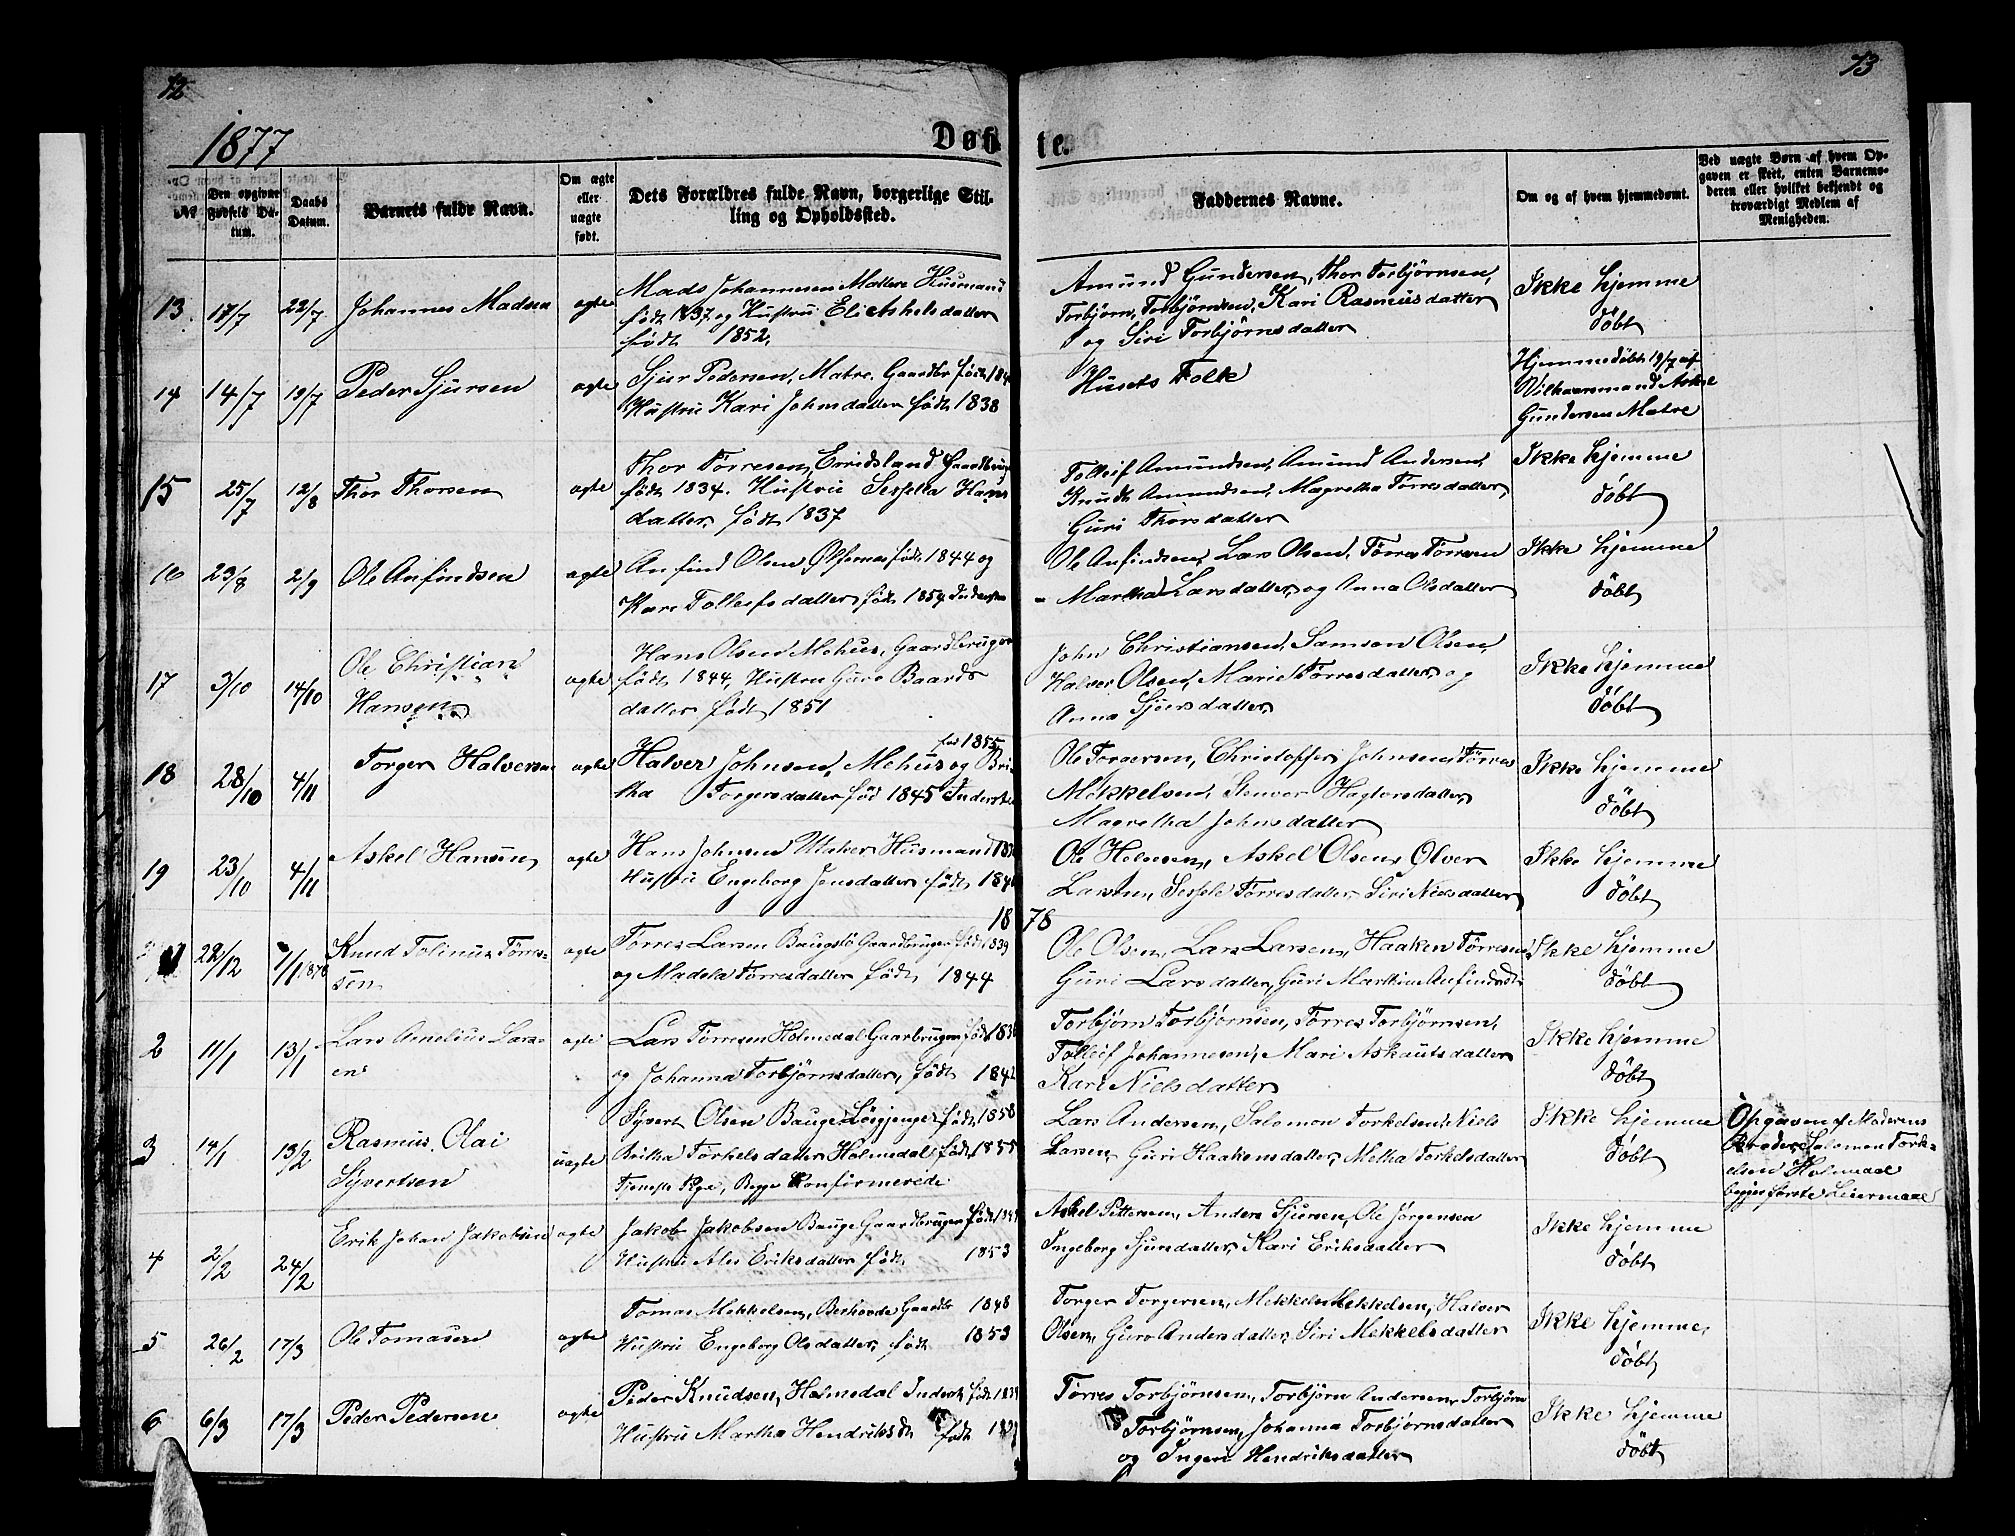 12
13
1877
Døbte.
№
Den opgivne Fødsels Datum.
Daabs Datum.
Barnets fulde Navn.
Om ægte eller uægte født.
Dets Forældres fulde Navn, borgerlige Stilling og Opholdssted.
Faddernes Navne.
Om og af hvem hjemmedømt.
Ved uægte Børn af hvem Opgaven er skeet, enten Barnemoderen eller hvilket bekjendt og troværdigt Medlem af Menigheden.
13. 18/7 22/7 Johannes Madsen ægte
Mads Johannesen Matere Husmand
født 1837 og Hustru Eli Askelsdatter
født 1852.
Amund Gundersen, Thor Torbjørnsen,
Torbjørn Torbjørnsen, Kari Rasmusdatter
og Siri Torbjørnsdatter
Ikke hjemme
døbt
14 14/7 19/7 Peder Sjursen ægte
Sjur Pedersen, Matre. Gaardbr født
Hustru Kari Johnsdatter født 1838
Husets Folk
Hjemmedøbt 19/7 af
Vilkaarsmand Aske
Gundersen Matre
15 25/7 12/8 Thor Thorsen ægte
Thor Tørresen, Erridsland Gaardbrug
født 1834. Hustru Sessella Hans
datter født 1837
Tolleif Amundsen, Amund Andersen,
Knudt Amundsen, Magretha Tørresdatter,
Guri Thorsdatter
Ikke hjemme
døbt
16 23/8 2/9 Ole Anfindsen ægte
Anfind Olsen Ølfernes født 1844 og
Kari Tolleifsdatter født 1854
Ole Anfindsen, Lars Olsen, Tørres Tørresen
- Martha Larsdatter, og Anna Olsdatter
Ikke hjemme
døbt
17 3/10 14/10 Ole Christian
Hansen ægte
Hans Olsen Mehus, Gaardbruger
født 1844, Hustru Guro Baards
datter født 1851
John Christiansen, Samson Olsen,
Halver Olsen, Mari Tørresdatter og
Anna Sjursdatter
Ikke hjemme
døbt
18 28/10 4/11 Torger Halversen ægte
fød 1855
Halver Johnsen, Mehus og Bri-
tha Torgersdatter fød 1845 Inderste
Ole Torgersen, Christoffer Johnsen, Tørres
Mekkelsen, Stenver Hagtorsdatter,
Magretha Johnsdatter
Ikke hjemme
døbt
19 23/10 4/11 Askel Hansen ægte
Hans Johnsen Utaker Husmand
Hustru Engeborg Jensdatter født
Ole Helnesen, Askel Olsen, Ølver
Larsen, Sessele Tørresdatter, Siri Nielsdatter
Ikke hjemme
døbt
1878
1 22/12 1/1 1878 Knud Tolinus Tørres-
sen ægte
Tørres Larsen Baugstø Gaardbruger født 1839
og Madela Tørresdatter født 1844
Ole Olsen, Lars Larsen, Haaken Tørresen
Guri Larsdatter, Guri Marthine Anfindsdt
Ikke hjemme
døbt
2 11/1 13/1 Lars Arnelius Lars-
en ægte
Lars Tørresen Holmedal Gaarbruger født
og Johanna Torbjørnsdatter, født 1842
Torbjørn Torbjørnsen, Tørres Torbjørnsen,
Tolleif Johannesen, Mari Askautsdatter
Kari Nielsdatter
Ikke hjemme
døbt
3 14/1 13/2 Rasmus Olai
Syvertsen uægte
Syvert Olsen Bauge Løsgjenge født 1858
Britha Torkelsdatter Holmedal født 1855
Tjeneste Pige, Begge Konfirmerede
Lars Andersen, Salomon Torkelsen, Niels
Larsen, Guri Haakensdatter, Metha Torkelsdatter
Ikke hjemme
døbt
Opgaven af Moderens
Broder, Salomon Tork-
elsen Holmedal
begges første Leiermaal
4 2/2 24/2 Erik Johan Jakobsen ægte
Jakob Jakobsen Bauge Gaardbruger født
Hustru Ales Eriksdatter født 1853
Askel Pettersen, Anders Sjursen, Ole Jørgensen
Ingeborg Sjursdatter, Kari Eriksdatter
Ikke hjemme
døbt
5 26/2 17/3 Ole Tomasen ægte
Tomas Mekkelsen, Berhovde Gaardbr 1848
Hustru Engeborg Olsdatter, født 1853
Torger Torgersen, Mekkel Mekkelsen, Halver
Olsen, Guro Andersdatter, Siri Mekkelsdatter
Ikke hjemme,
døbt
6 6/3 17/3 Peder Pedersen ægte
Peder Knudsen, Holmedal Inderst født
Hustru Martha Hendriksdt født
Tørres Torbjørnsen, Torbjørn Andersen, Torbjørn
Torbjørnsen, Johanna Torbjørnsdatter
og Ingeri Hendriksdatter
Ikke hjemme
døbt